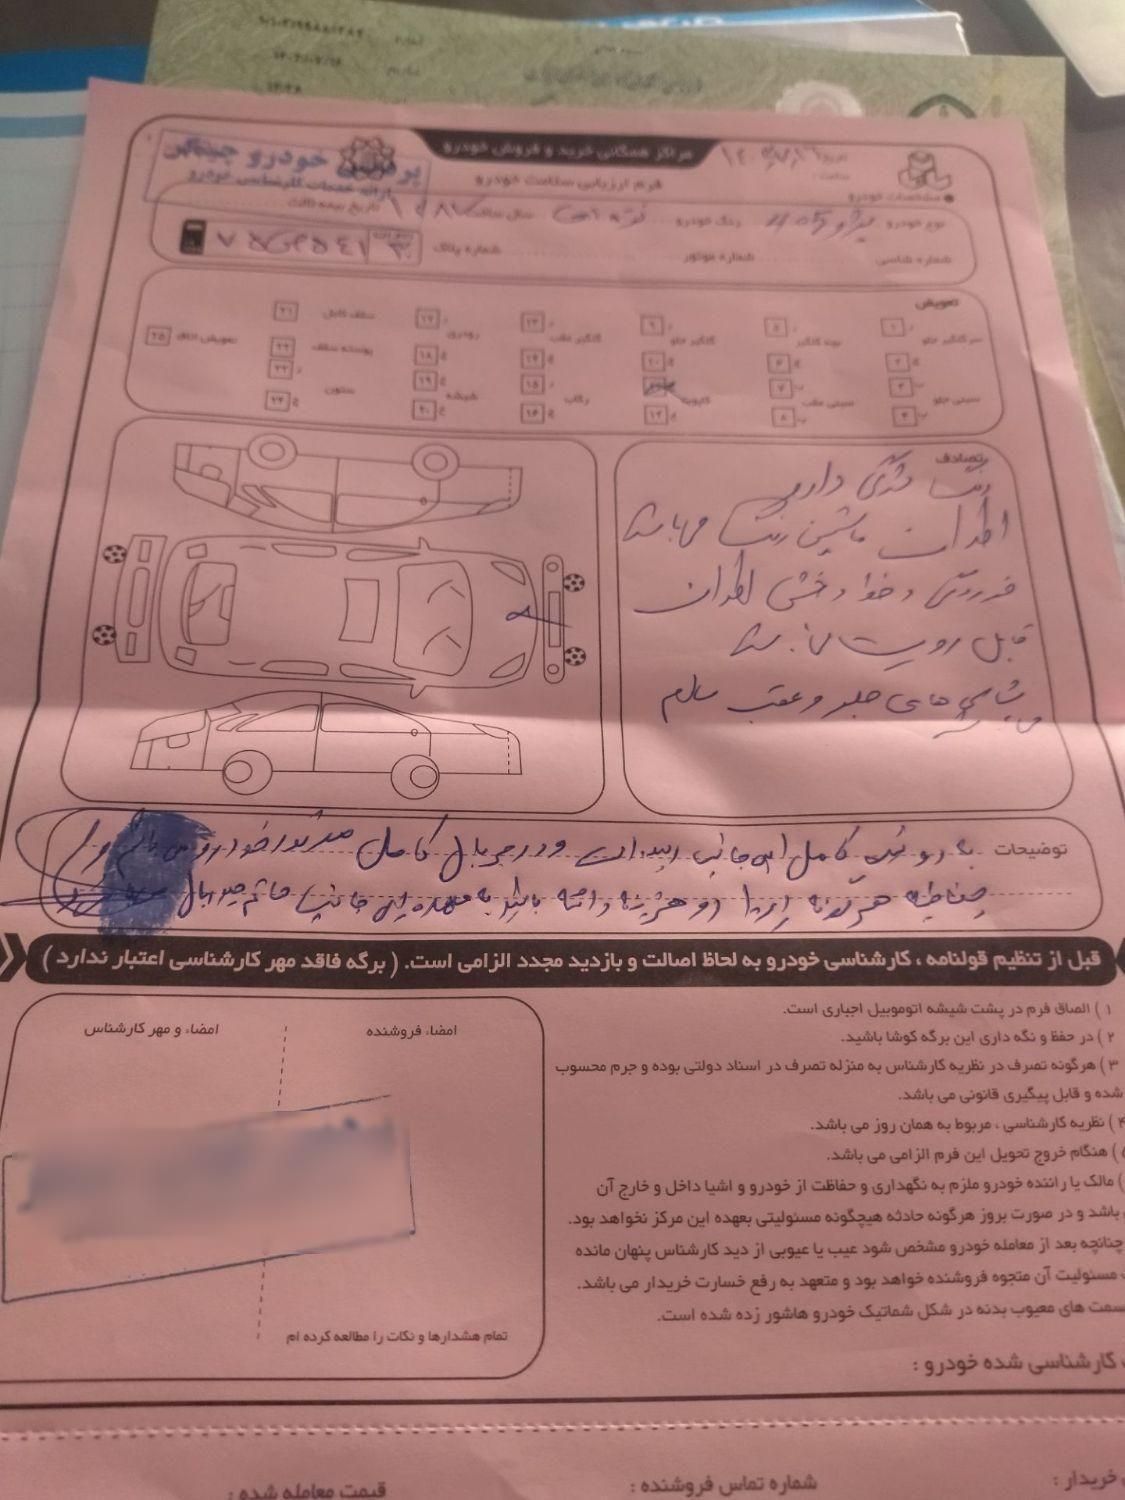 مراکز همگانی خرید و فروش خودرو
فرم ارزیابی سلامت خودرو
تاریخ
ساعت :
خودرو
ارائه خدمات کارشناسی خودرو
مشخصات خودرو
نوع خودرو پژو 405 رنگ خودرو نقره ای سال ساخت تاریخ بیمه ثالث
شماره شاسی شماره موتور شماره پلاک
تعویض
سر گلگیر جلو ر ۱ بچه گلگیر ر ۵ گلگیر جلو ر ۹ گلگیر عقب ر ۱۳ رودری ر ۱۷ سقف کامل ۲۱
چ ۲ چ ۶ چ ۱۰ چ ۱۴ چ ۱۸ پوسته سقف ۲۲ تعویض اتاق ۲۵
سینی جلو ب ۳ سینی عقب ب ۷ کاپوت رکاب ر ۱۵ شیشه چ ۱۹ ستون ر ۲۳
ب ۴ ب ۸ چ ۱۲ چ ۱۶ چ ۲۰ چ ۲۴
تصادف
رنگ شدگی دارد
اطراف ماشین رنگ می باشد
فرورتگی و خط و خش اطراف
قابل رویت می باشد
شاسی های جلو و عقب سالم
می باشد
توضیحات به رویت کامل این جانب رسیده است و در جریان کامل خودرو می باشم و
چنانچه هر گونه ایراد و هزینه داشته باشد به عهده این جانب خانم
قبل از تنظیم قولنامه ، کارشناسی خودرو به لحاظ اصالت و بازدید مجدد الزامی است. ( برگه فاقد مهر کارشناسی اعتبار ندارد )
۱ ) الصاق فرم در پشت شیشه اتوموبیل اجباری است.
۲ ) در حفظ و نگه داری این برگه کوشا باشید.
۳ ) هرگونه تصرف در نظریه کارشناس به منزله تصرف در اسناد دولتی بوده و جرم محسوب
شده و قابل پیگیری قانونی می باشد.
۴ ) نظریه کارشناسی ، مربوط به همان روز می باشد.
) هنگام خروج تحویل این فرم الزامی می باشد.
) مالک یا راننده خودرو ملزم به نگهداری و حفاظت از خودرو و اشیا داخل و خارج آن
باشد و در صورت بروز هرگونه حادثه هیچگونه مسئولیتی بعهده این مرکز نخواهد بود.
چنانچه بعد از معامله خودرو مشخص شود عیب یا عیوبی از دید کارشناس پنهان مانده
مسئولیت آن متوجه فروشنده خواهد بود و متعهد به رفع خسارت خریدار می باشد.
سمت های معیوب بدنه در شکل شماتیک خودرو هاشور زده شده است.
امضاء فروشنده
امضاء و مهر کارشناس
تمام هشدارها و نکات را مطالعه کرده ام
کارشناسی شده خودرو :
خریدار :
شماره تماس فروشنده :
قیمت معامله شده :